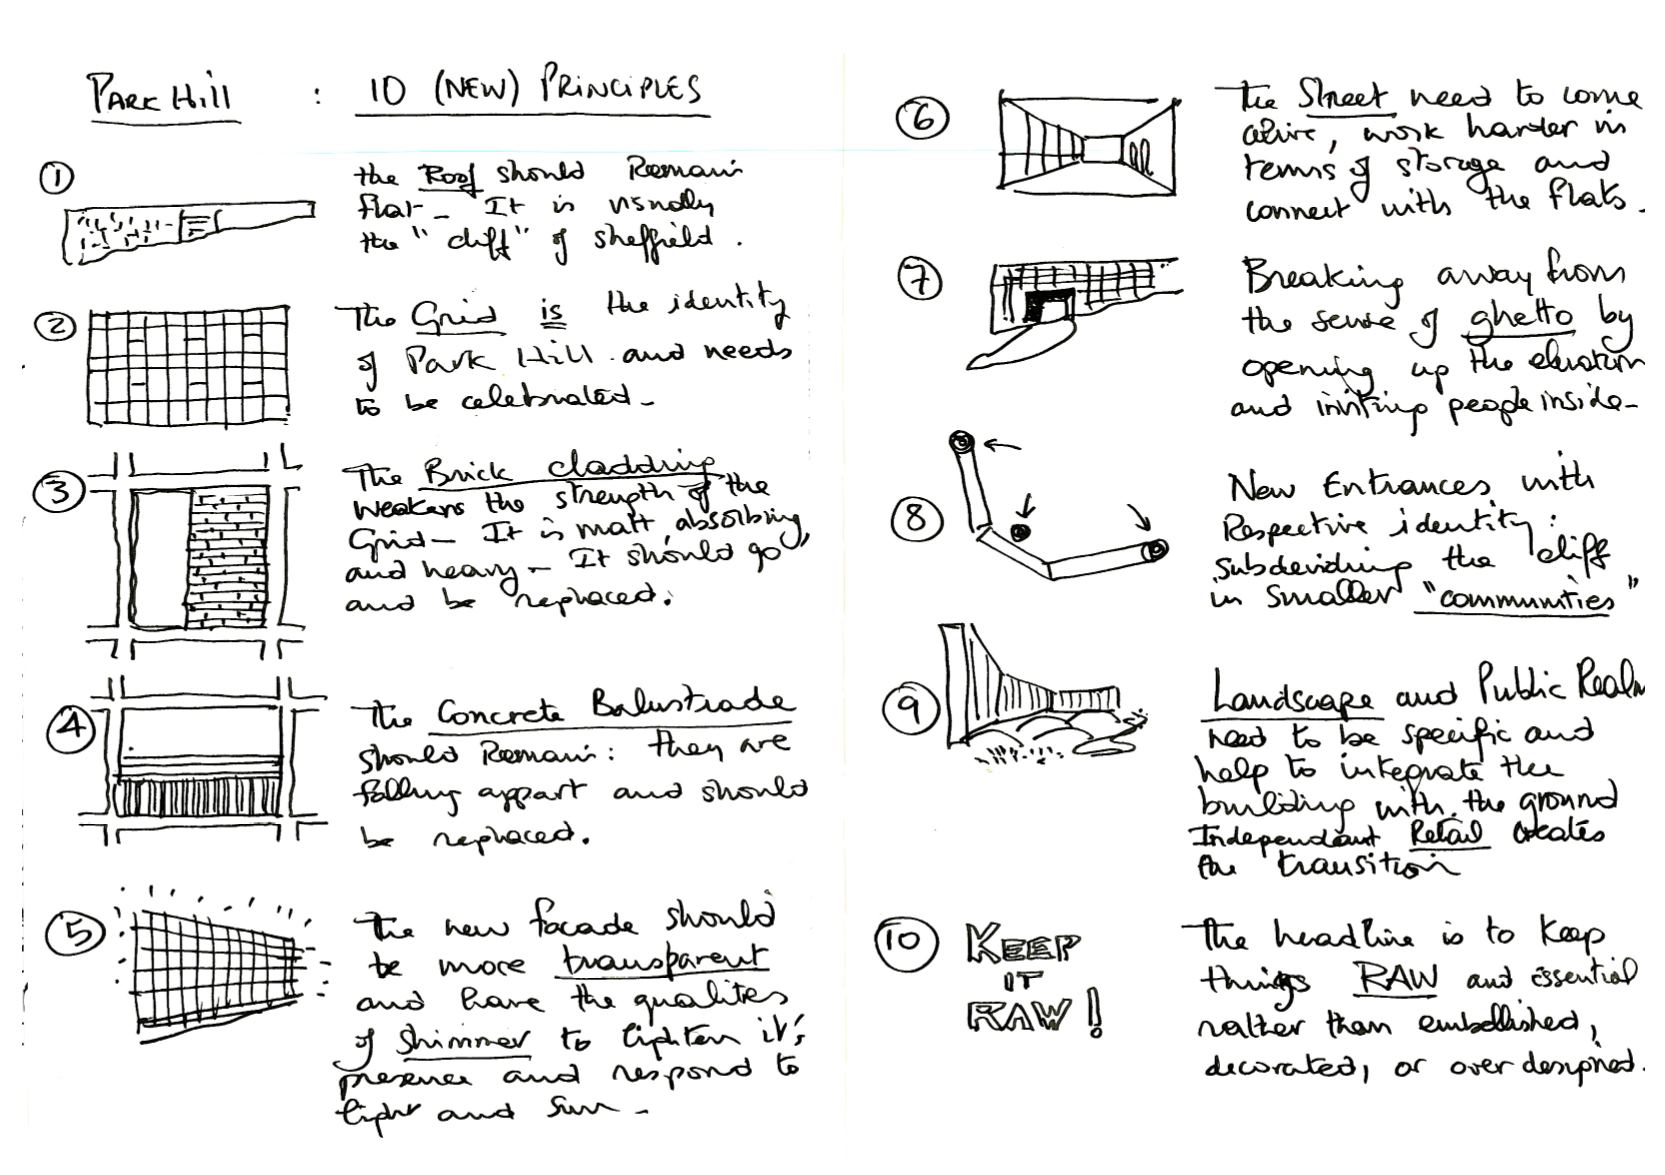 PARK Hill : 10 (NEW) PRINCIPLES
1
the Roof should Remain
flat_ It is visually
the "cliff" of sheffield.
2
The Grid is the identity
of Park Hill and needs
to be celebrated_
3
The Brick cladding
weakens the strength of the
Grid_ It is matt, absorbing,
and heavy_ It should go
and be replaced.
4
The Concrete Balustrade
should Remain: they are
falling appart and should
be replaced.
5
The new facade should
be more transparent
and have the qualities
of shimmer to lighten it's
presence and respond to
light and sun_
6
The Street need to come
alive, work harder in
terms of storage and
connect with the flats.
7
Breaking away from
the sense of ghetto by
opening up the elevation
and inviting people inside_
8
New Entrances with
Respective identity:
subdeviding the cliff
in smaller "communities"
9
Landscape and Public Realm
need to be specific and
help to integrate the
building with the ground
Independant Retail creates
the transition
10
KEEP
IT
RAW!
The headline is to keep
things RAW and essential
rather than embellished,
decorated, or over designed.